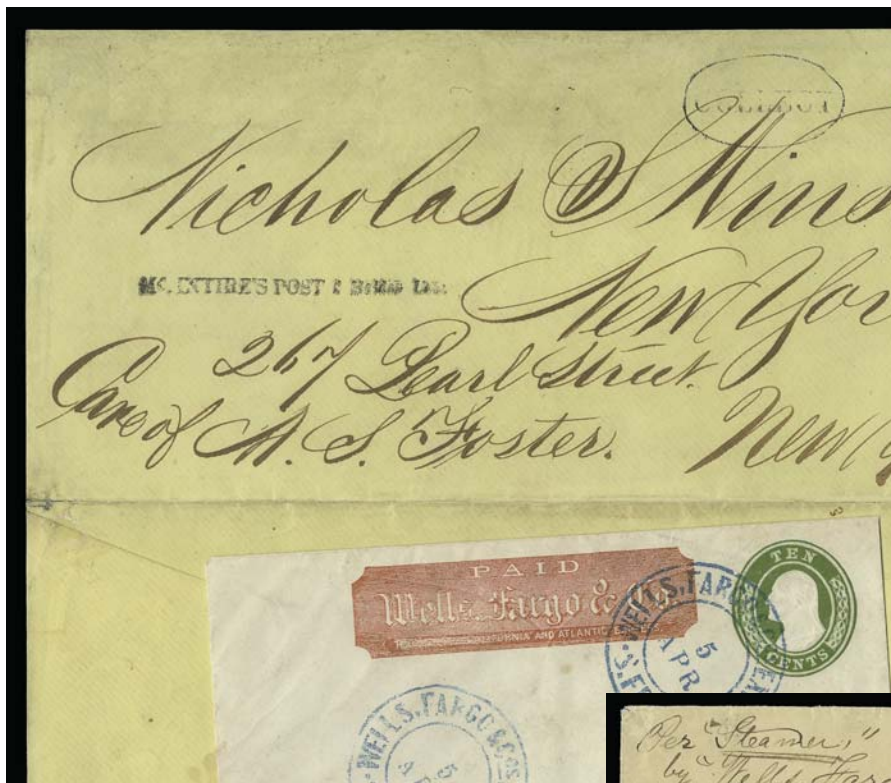 COLLECT
Nicholas
MC. INTIRE'S POST &
New Yor
267 Pearl Street.
Care of A. S. Foster. New Y
PAID
Wells, Fargo & Co
CALIFORNIA AND ATLANTIC
WELLS, FARGO
5
APR
S.F
TEN
CENTS
WELLS, FARGO & COS
5
AP
Per "Steamer,"
by Wells Far